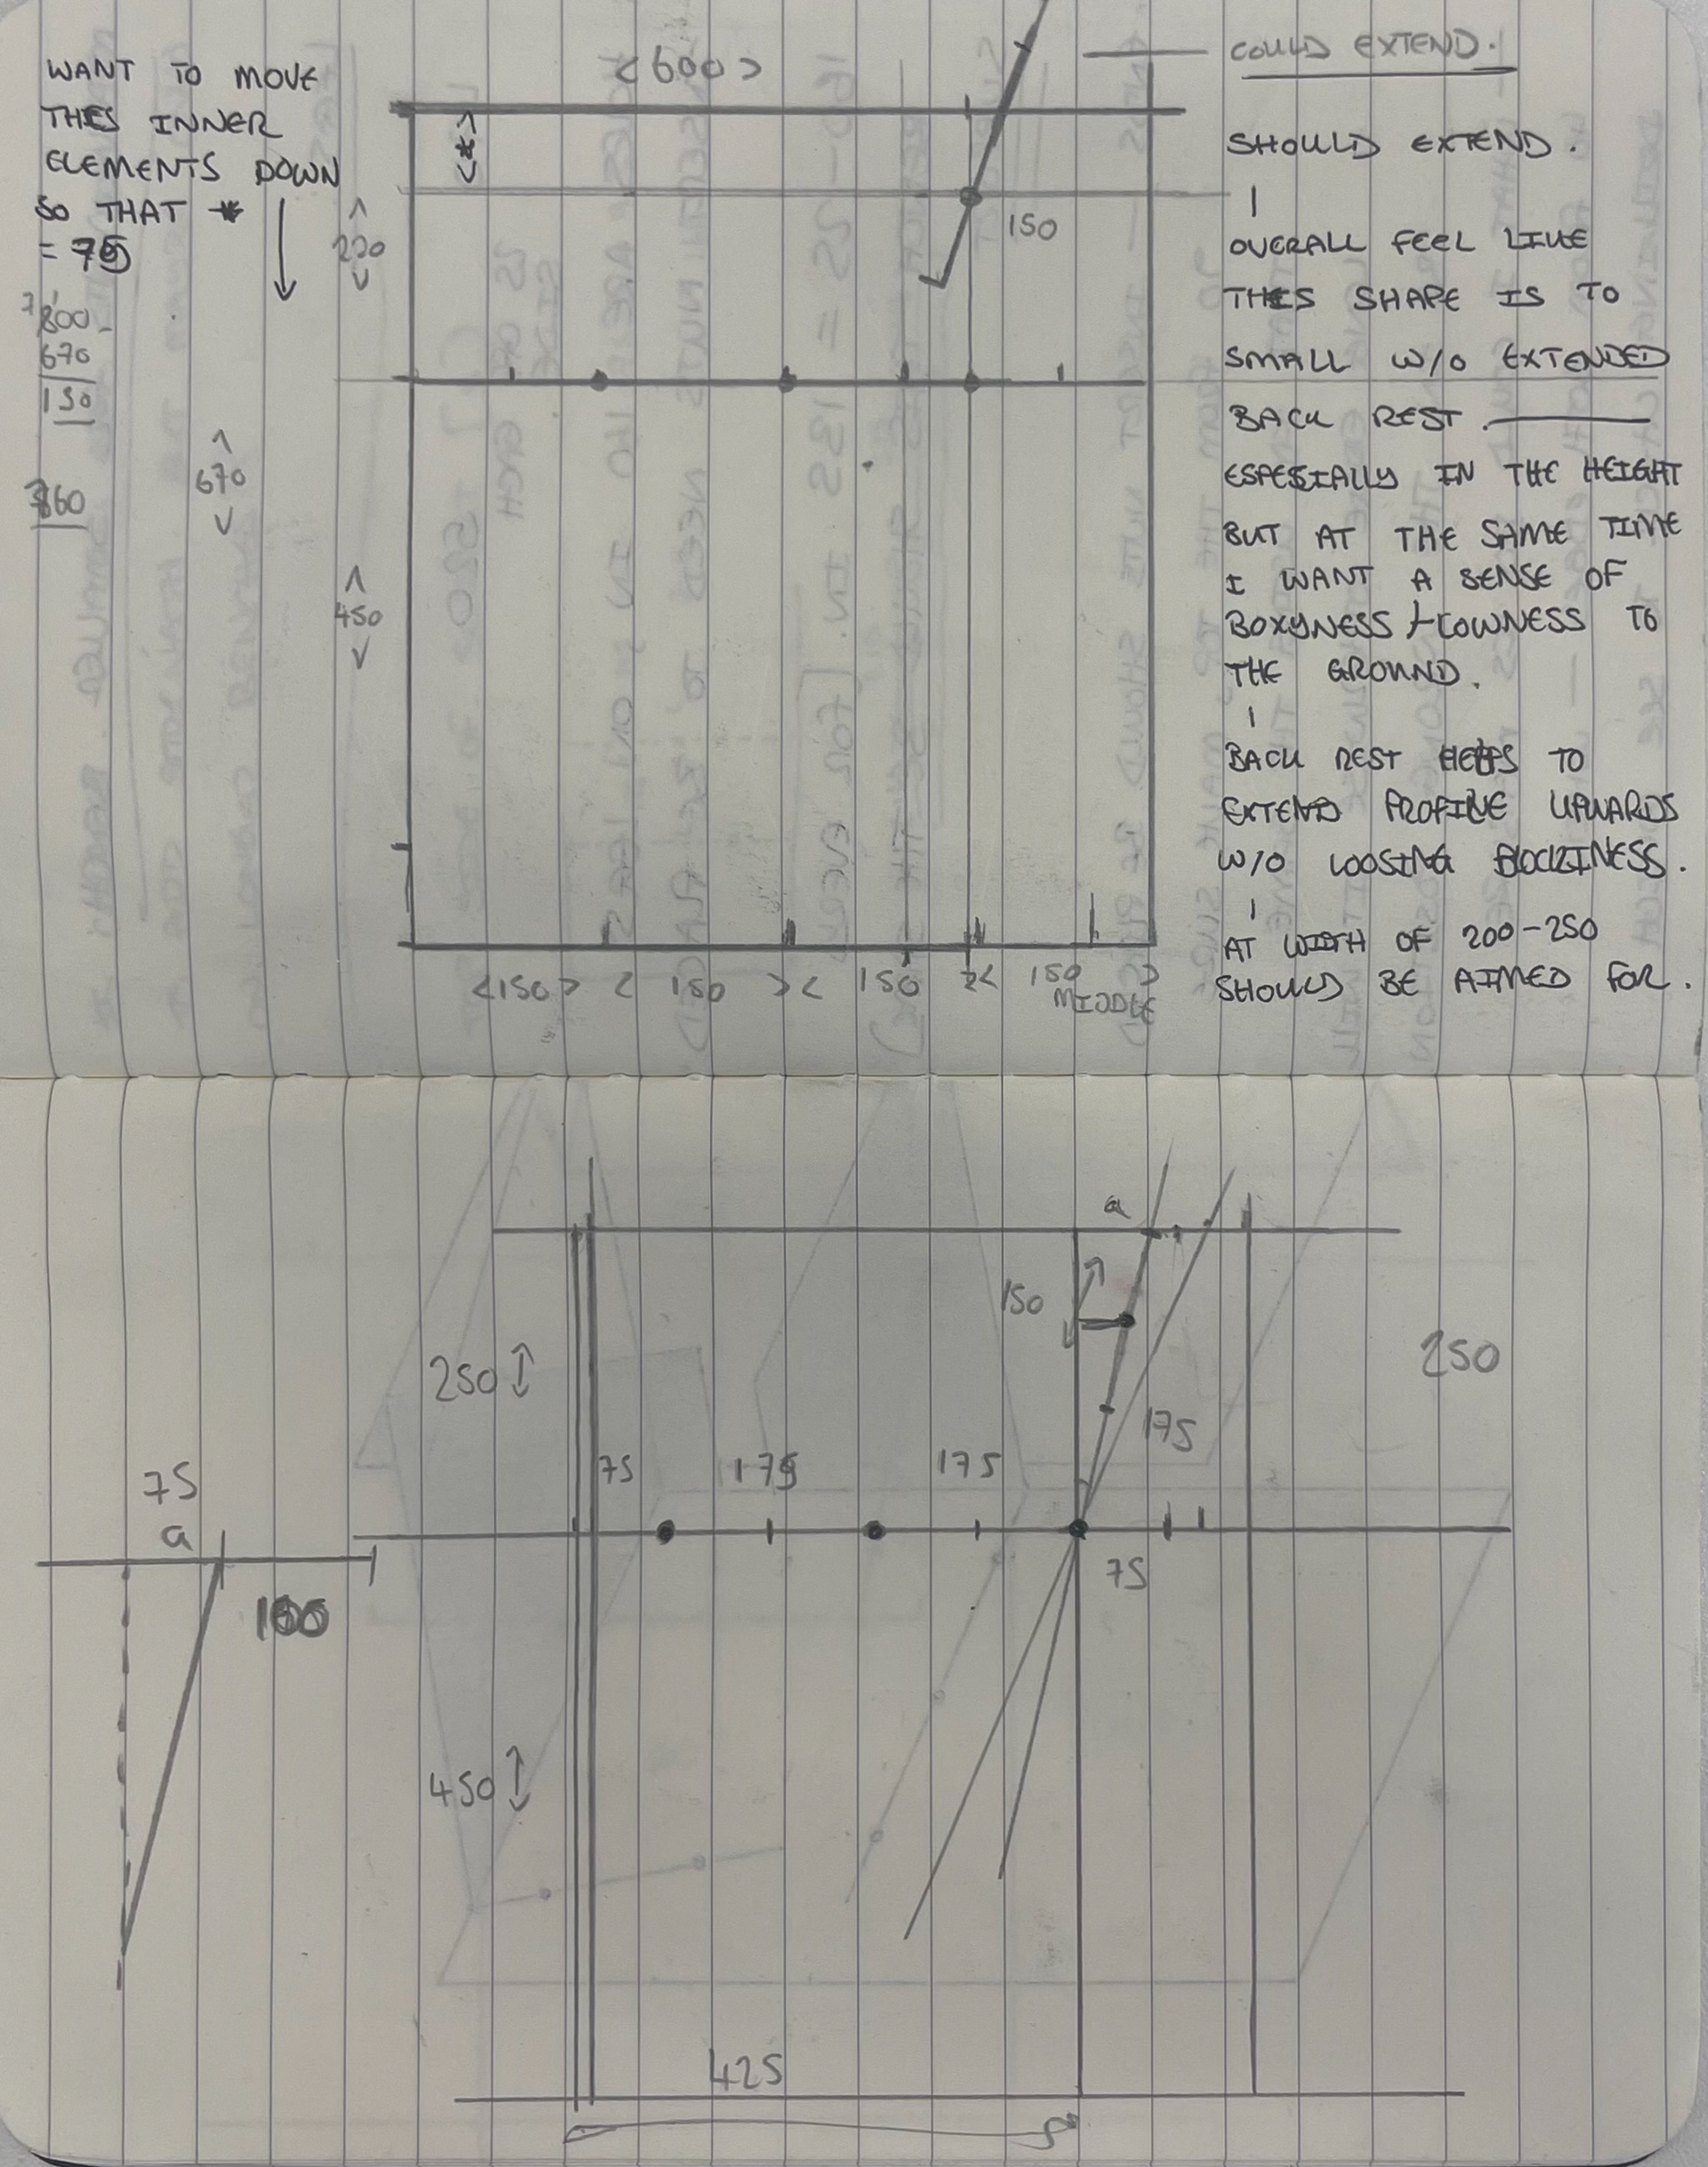 WANT TO MOVE
THIS INNER
ELEMENTS DOWN
SO THAT *
= 75
800-
670
130
760
670
<600>
*
220
450
150
<150> < 150 >< 150 >< 150 >
MIDDLE
COULD EXTEND.
SHOULD EXTEND.
OVERALL FEEL LIKE
THIS SHAPE IS TO
SMALL W/O EXTENDED
BACK REST.
ESPESIALLY IN THE HEIGHT
BUT AT THE SAME TIME
I WANT A SENSE OF
BOXYNESS + LOWNESS TO
THE GROUND.
BACK REST HELPS TO
EXTEND PROFILE UPWARDS
W/O LOOSING BLOCKINESS.
AT WIDTH OF 200-250
SHOULD BE AIMED FOR.
a
150
250
250
175
75
175
175
75
75
a
100
450
425